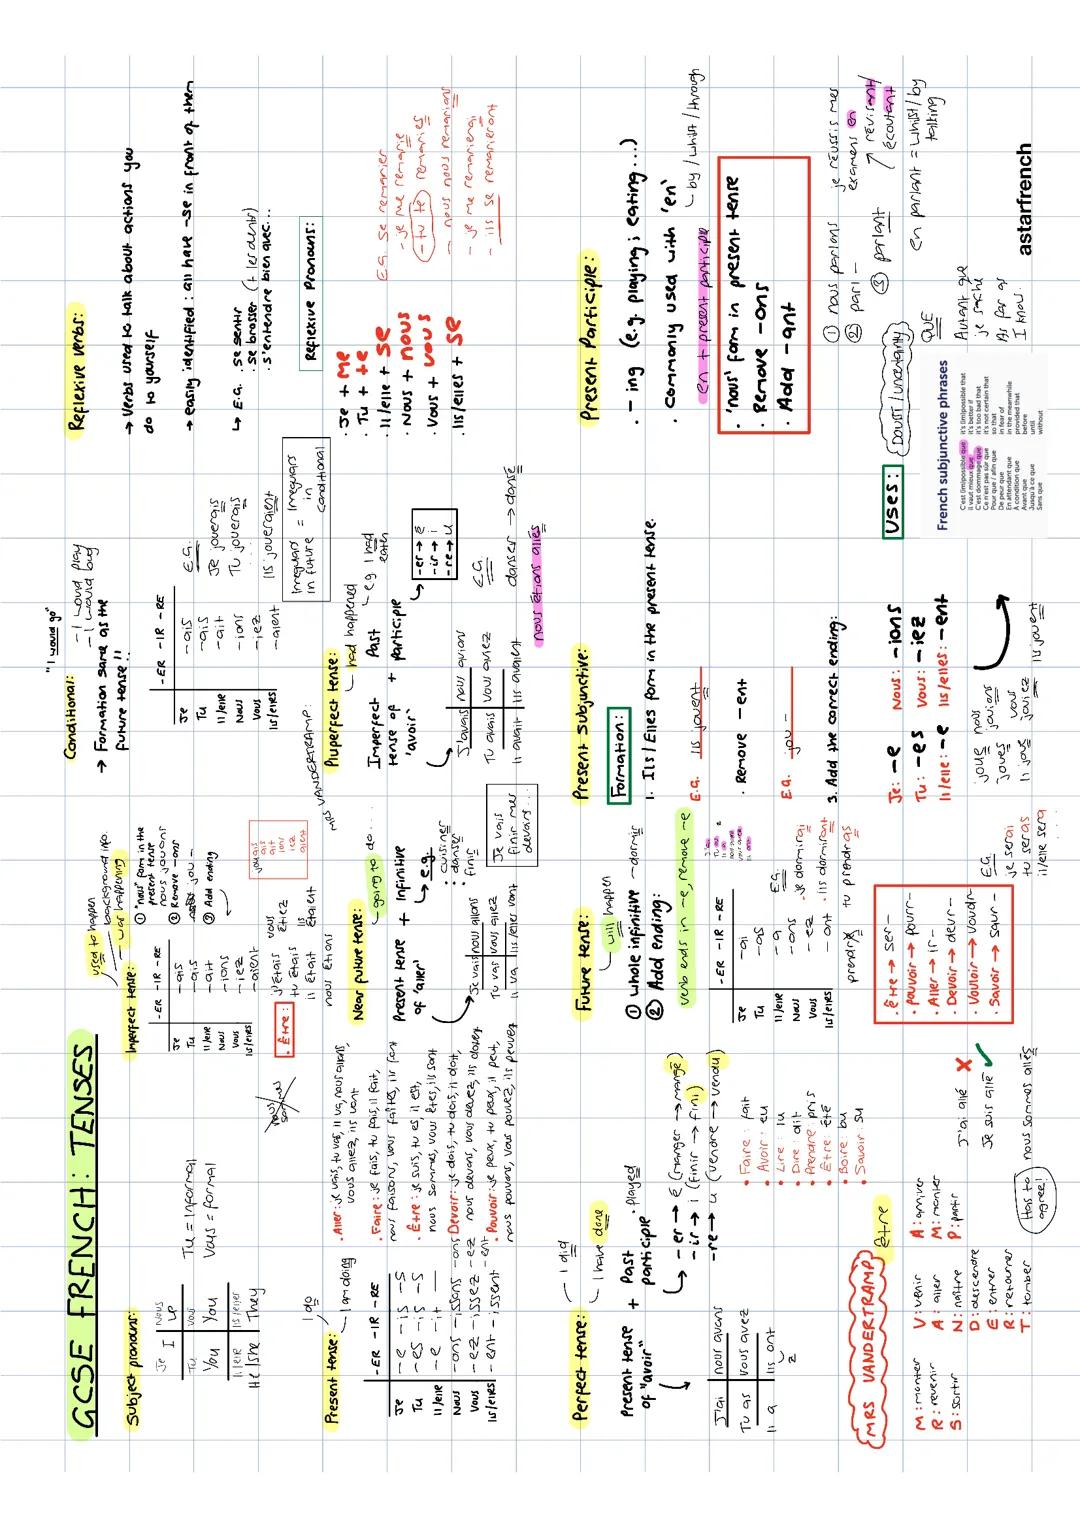 GCSE FRENCH: TENSES
Subject pronouns:
Je
I
Nous
Tu
You
Vous
You
Il/elle
He/she
Ils/elles
They
Tu = Informal
Vous = formal
Present tense:
I do
I am doing
-ER -IR -RE
Je -e -is -s
Tu -es -is -s
Il/elle -e -it —
Nous -ons -issons -ons
Vous -ez -issez -ez
Ils/elles -ent -issent -ent
• Aller: je vais, tu vas, il va, nous allons,
vous allez, ils vont
• Faire: je fais, tu fais, il fait,
nous faisons, vous faites, ils font
• Être: je suis, tu es, il est,
nous sommes, vous êtes, ils sont
Devoir: je dois, tu dois, il doit,
nous devons, vous devez, ils doivent
• Pouvoir: je peux, tu peux, il peut,
nous pouvons, vous pouvez, ils peuvent
Perfect tense:
I did
I have done
Present tense + Past
of "avoir" participle
• played
J'ai nous avons
Tu as vous avez
Il a ils ont
z
-er → é (manger → mangé)
-ir → i (finir → fini)
-re → u (vendre → vendu)
• Faire: fait
• Avoir: eu
• Lire: lu
• Dire: dit
• Prendre: pris
• Être: été
• Boire: bu
• Savoir: su
MRS VANDERTRAMP
être
M: monter
R: revenir
S: sortir
V: venir
A: aller
N: naître
D: descendre
E: entrer
R: retourner
T: tomber
A: arriver
M: monter
P: partir
J'ai allé ✗
Je suis allé ✓
Has to
agree!
nous sommes allés
Imperfect tense:
used to happen
background info.
was happening
-ER -IR -RE
Je -ais
Tu -ais
Il/elle -ait
Nous -ions
Vous -iez
Ils/elles -aient
① "nous" form in the
present tense
nous jouons
② Remove -ons
jou -
③ Add ending
jouais
ais
ait
ions
iez
aient
• Être:
j'étais
tu étais
il était
nous étions
vous
étiez
ils
étaient
Near future tense:
going to do...
Present tense + Infinitive
of 'aller'
e.g.
• cuisiner
• danser
finir
Je vais nous allons
Tu vas vous allez
Il va ils/elles vont
Je vais
finir mes
devoirs...
Future tense:
will happen
① whole infinitive - dormir
② Add ending:
verb ends in -e, remove -e
-ER -IR -RE
Je -ai
Tu -as
Il/elle -a
Nous -ons
Vous -ez
Ils/elles -ont
E.G.
• je dormirai
• ils dormiront
prendre
tu prendras
• Être → ser-
• Pouvoir → pourr-
• Aller → ir-
• Devoir → devr-
• Vouloir → voudr-
• Savoir → saur-
E.G.
je serai
tu seras
il/elle sera
Conditional:
"I would go"
- I would play
- I would buy
→ Formation same as the
future tense!!
-ER -IR -RE
Je -ais
Tu -ais
Il/elle -ait
Nous -ions
Vous -iez
Ils/elles -aient
E.G.
Je jouerais
Tu jouerais
Ils joueraient
Irregulars = Irregulars
in future in
conditional
MRS VANDERTRAMP:
Pluperfect tense:
had happened
e.g I had
eaten
Imperfect Past
tense of + participle
'avoir'
-er → é
-ir → i
-re → u
J'avais nous avions
Tu avais vous aviez
Il avait ils avaient
E.G.
danser → dansé
nous étions allés
Present Subjunctive:
Formation:
1. Ils/Elles form in the present tense.
E.G. Ils jouent
• Remove -ent
E.G. jou -
3. Add the correct ending:
Je: -e Nous: -ions
Tu: -es Vous: -iez
Il/elle: -e Ils/elles: -ent
joue
joues
il joue
nous
jouions
vous
jouiez
ils jouent
Reflexive verbs:
→ Verbs used to talk about actions you
do to yourself
→ easily identified: all have -se in front of them
↳ E.G. • se sentir
• se brosser (+ les dents)
• s'entendre bien avec...
Reflexive Pronouns:
• Je + me
• Tu + te
• Il/elle + se
• Nous + nous
• Vous + vous
• Ils/elles + se
E.G. Se remarier
- je me remarie
- tu te remaries
- nous nous remarions
- je me remarierai
- ils se remarieront
Present Participle:
• -ing (e.g. playing; eating...)
• commonly used with 'en'
en + present participle
by / whilst / through
• 'nous' form in present tense
• Remove -ons
• Add -ant
① nous parlons
② parl -
③ parlant
je réussis mes
examens en
révisant/
écoutant
en parlant = whilst/by
talking
Uses:
Doubt / uncertainty
French subjunctive phrases
C'est (im)possible que it's (im)possible that
Il vaut mieux que it's better if
C'est dommage que it's too bad that
Ce n'est pas sûr que it's not certain that
Pour que / afin que so that
De peur que in fear of
En attendant que in the meanwhile
A condition que provided that
Avant que before
Jusqu'à ce que until
Sans que without
QUE
Autant que
je sache
As far as
I know.
astarfrench